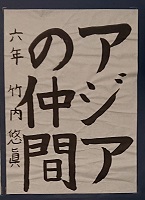 アジア
の仲間
六年 竹内悠眞